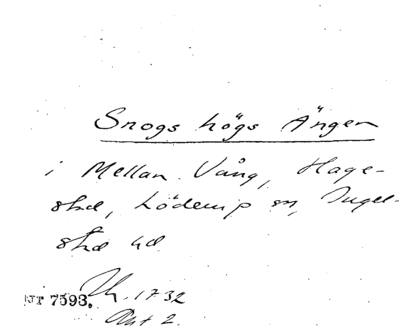 Snogs högs Ängen
i Mellan Vång, Hage-
stad, Löderup sn, Ingel-
stad hd
NT 7593. Lh. 1732
Akt 2.